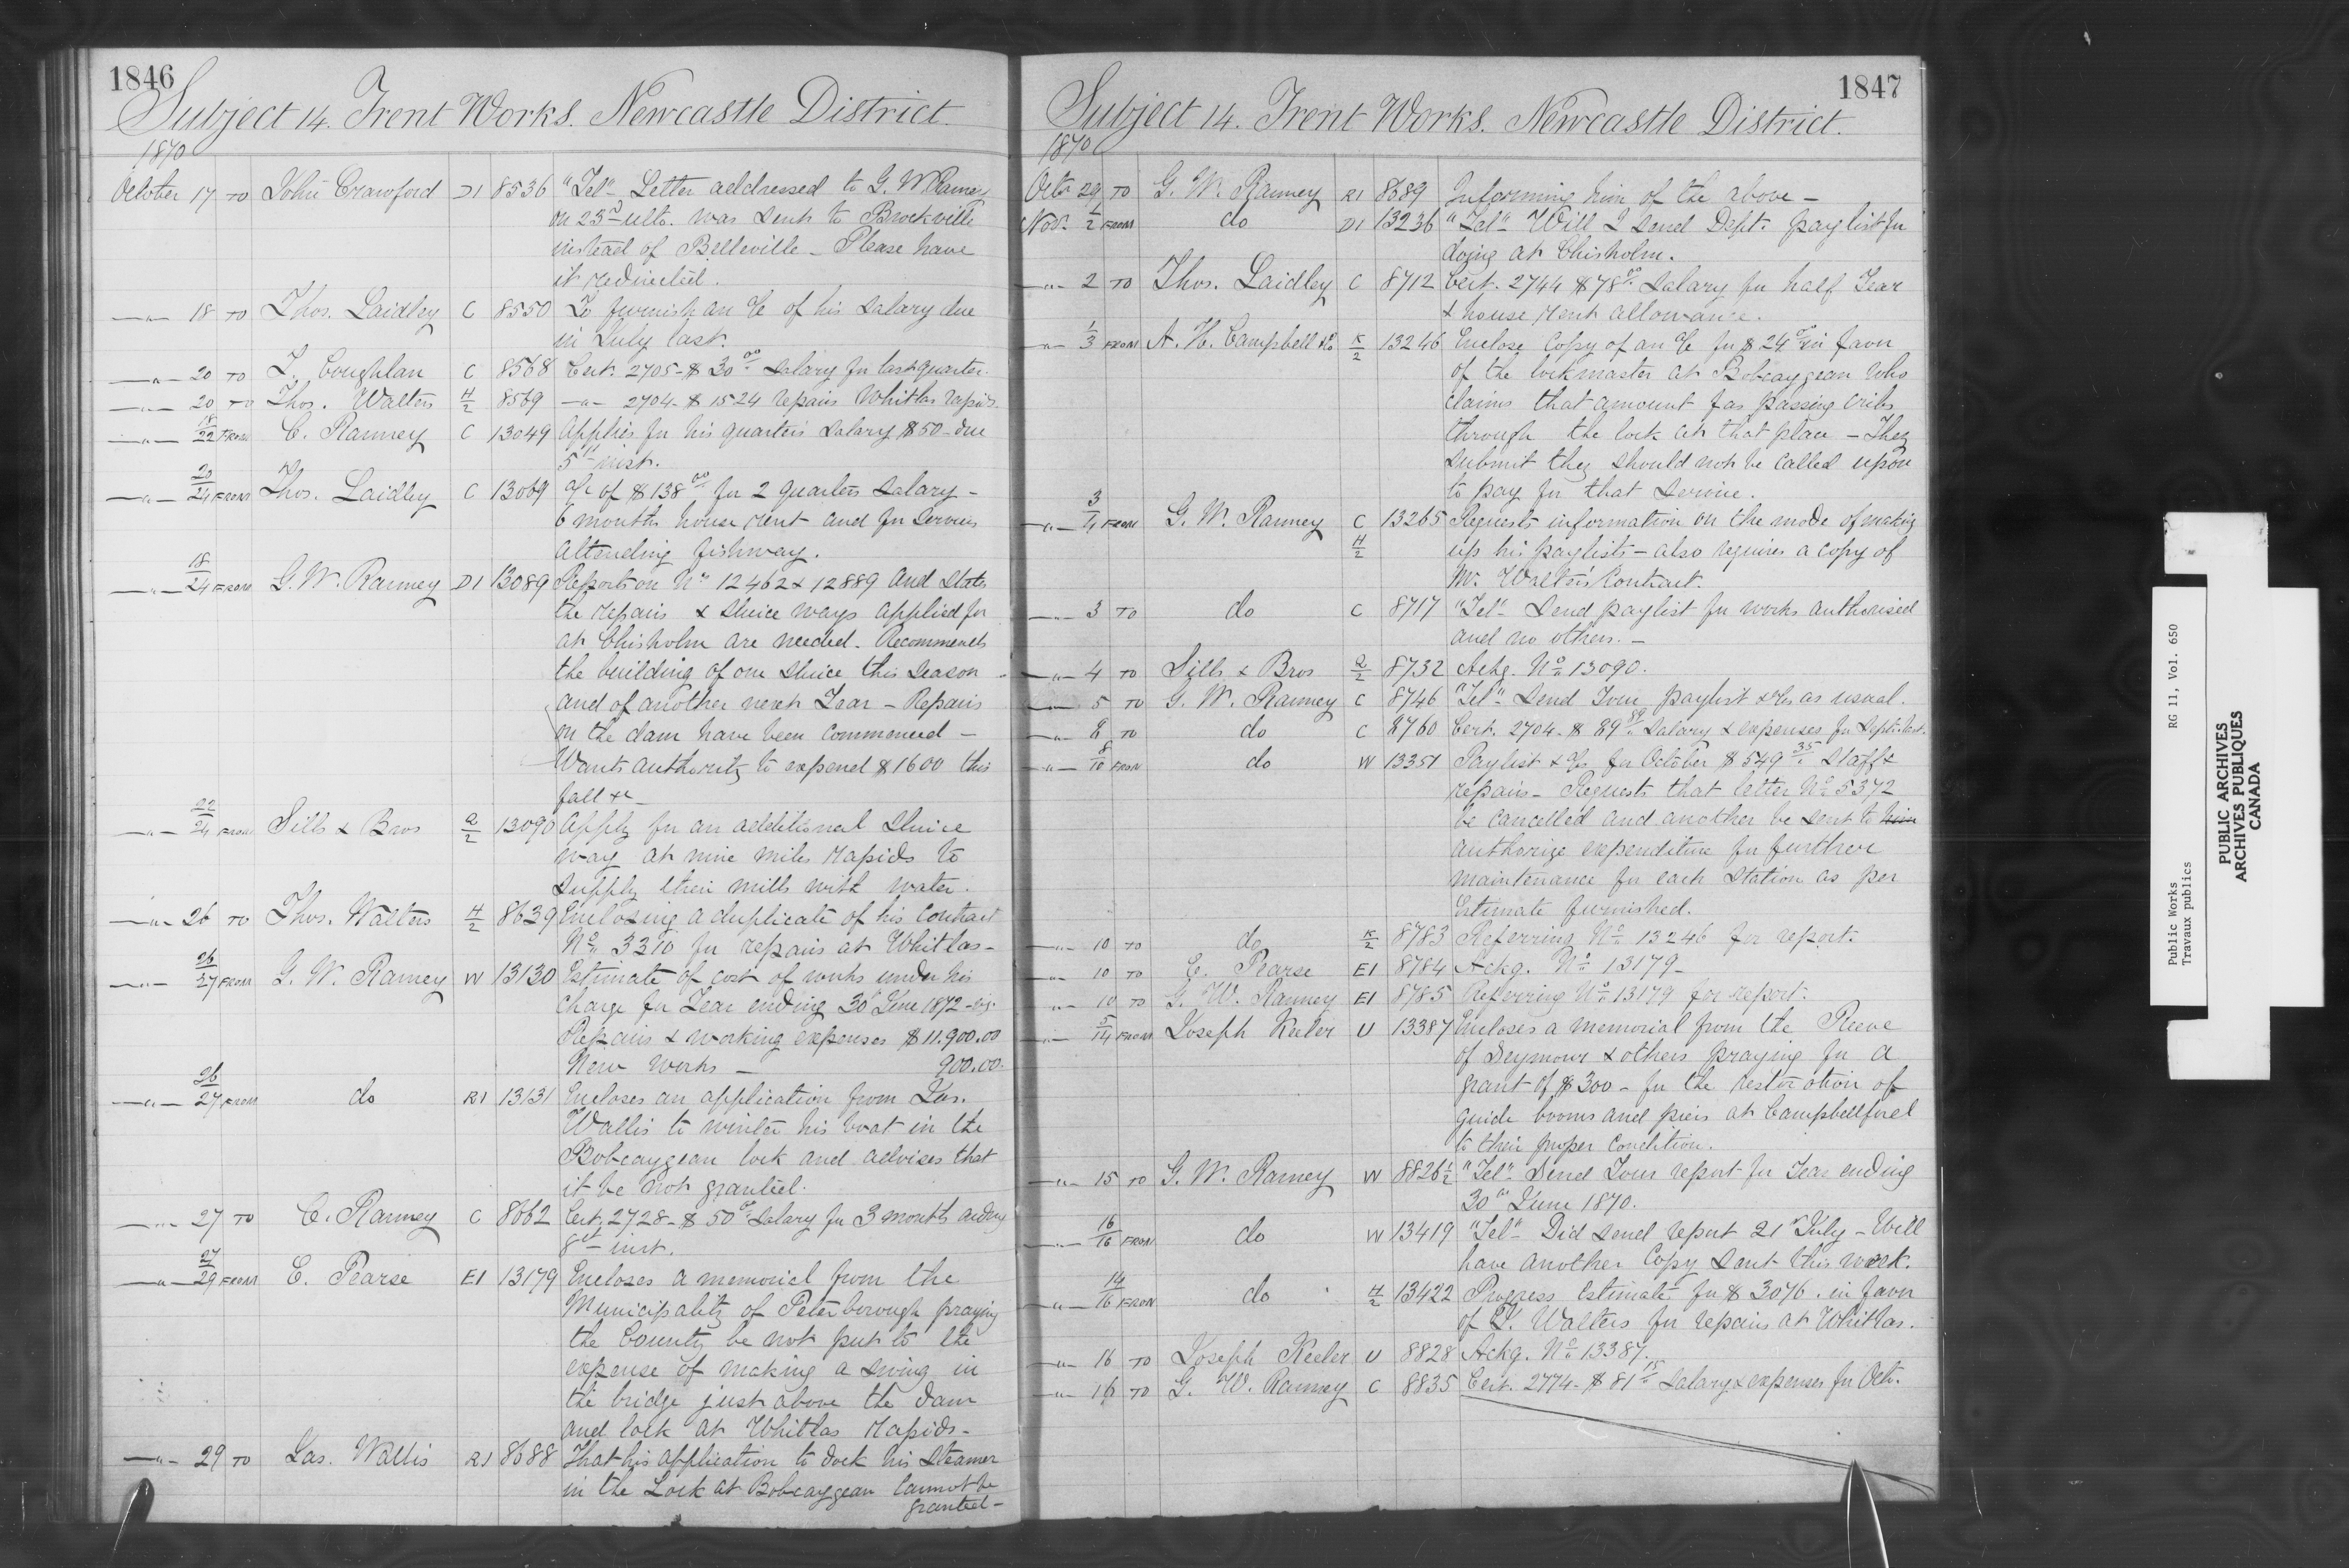 1846
Subject 14. Trent Works. Newcastle District.
1870
October 17 TO John Crawford D1 8536 "Tel" Letter addressed to G. W Ranney
on 23rd ulto. was sent to Brockville
instead of Belleville - Please have
it redirected.
—"— 18 TO Thos. Laidley C 8550 To furnish an a/c of his salary due
in July last.
—"— 20 TO T. Coughlan C 8568 Cert. 2705 - $30.00 salary for last quarter.
—"— 20 TO Thos. Walters H/2 8569 —"— 2704 - $1524 repairs Whitlas rapids.
—"— 18/22 FROM C. Ranney C 13049 Applies for his quarters salary $50 - due
5th inst.
—"— 20/24 FROM Thos. Laidley C 13069 a/c of $138.00 for 2 quarters salary -
6 months house rent and for services
attending fishway.
—"— 18/24 FROM G. W. Ranney D1 13089 Reports on No 12462 & 12889 and states
the repairs & sluice ways applied for
at Chisholm are needed. Recommends
the building of one sluice this season
and of another next Year - Repairs
on the dam have been commenced -
Wants authority to expend $1600 this
fall &c -
—"— 22/24 FROM Sills & Bros Q/2 13090 Apply for an additional sluice
way at nine miles rapids to
supply their mills with water.
—"— 26 TO Thos. Walters H/2 8639 Enclosing a duplicate of his contract
No 3310 for repairs at Whitlas -
—"— 26/27 FROM G. W. Ranney W 13130 Estimate of cost of works under his
charge for Year ending 30th June 1872 - viz.
Repairs & working expenses $11.900.00
New Works — 900.00.
—"— 26/27 FROM do R1 13131 Encloses an application from Jas.
Wallis to winter his boat in the
Bobcaygean lock and advises that
it be not granted.
—"— 27 TO C. Ranney C 8662 Cert. 2728 - $50.00 salary for 3 months ending
8th inst.
—"— 27/29 FROM E. Pearse E1 13179 Encloses a memorial from the
Municipality of Peterborough praying
the County be not put to the
expense of making a swing in
the bridge just above the dam
and lock at Whitlas Rapids -
—"— 29 TO Jas. Wallis R1 8688 That his application to dock his steamer
in the Lock at Bobcaygean cannot be
granted -
1847
Subject 14. Trent Works. Newcastle District.
1870
Octr 29 TO G. W. Ranney R1 8689 Informing him of the above -
Nov. 1/2 FROM do D1 13236 "Tel" Will I send Dept. paylist for
doing at Chisholm.
—"— 2 TO Thos. Laidley C 8712 Cert. 2744 $78.00 salary for half Year
& house rent allowance.
—"— 1/3 FROM A. H. Campbell & Co K/2 13246 Enclose copy of an a/c for $24.00 in favor
of the lockmaster at Bobcaygean who
claims that amount for passing cribs
through the lock at that place - They
submit they should not be called upon
to pay for that service.
—"— 3/4 FROM G. W. Ranney C H/2 13265 Requests information on the mode of making
up his paylists - also requires a copy of
Mr. Walters' Contract.
—"— 3 TO do C 8717 "Tel" Send paylist for works authorised
and no others. -
—"— 4 TO Sills & Bros Q/2 8732 Ackg. No 13090.
—"— 5 TO G. W. Ranney C 8746 "Tel" Send Your paylist & a/cs as usual.
—"— 8 TO do C 8760 Cert. 2704 - $89.89 salary & expenses for Septr. last.
—"— 8/10 FROM do W 13351 Paylist & a/c for October $549.35 staff &
repairs - Requests that letter No 5372
be cancelled and another be sent to him
authorize expenditure for further
maintenance for each station as per
Estimate furnished.
—"— 10 TO do K/2 8783 Referring No 13246 for report.
—"— 10 TO E. Pearse E1 8784 Ackg. No 13179 -
—"— 10 TO G. W. Ranney E1 8785 Referring No 13179 for report.
—"— 5/14 FROM Joseph Keeler U 13387 Encloses a memorial from the Reeve
of Seymour & others praying for a
grant of $300 - for the restoration of
guide booms and piers at Campbellford
to their proper condition.
—"— 15 TO G. W. Ranney W 8826½ "Tel" Send Your report for Year ending
30th June 1870.
—"— 16/16 FROM do W 13419 "Tel" Did send report 21st July - Will
have another copy sent this week.
—"— 14/16 FROM do H/2 13422 Progress Estimate for $3076. in favor
of T. Walters for repairs at Whitlas.
—"— 16 TO Joseph Keeler U 8828 Ackg. No 13387.
—"— 16 TO G. W. Ranney C 8835 Cert. 2774 - $81.15 salary & expenses for Octr.
Public Works RG 11, Vol. 650
Travaux publics
PUBLIC ARCHIVES
ARCHIVES PUBLIQUES
CANADA